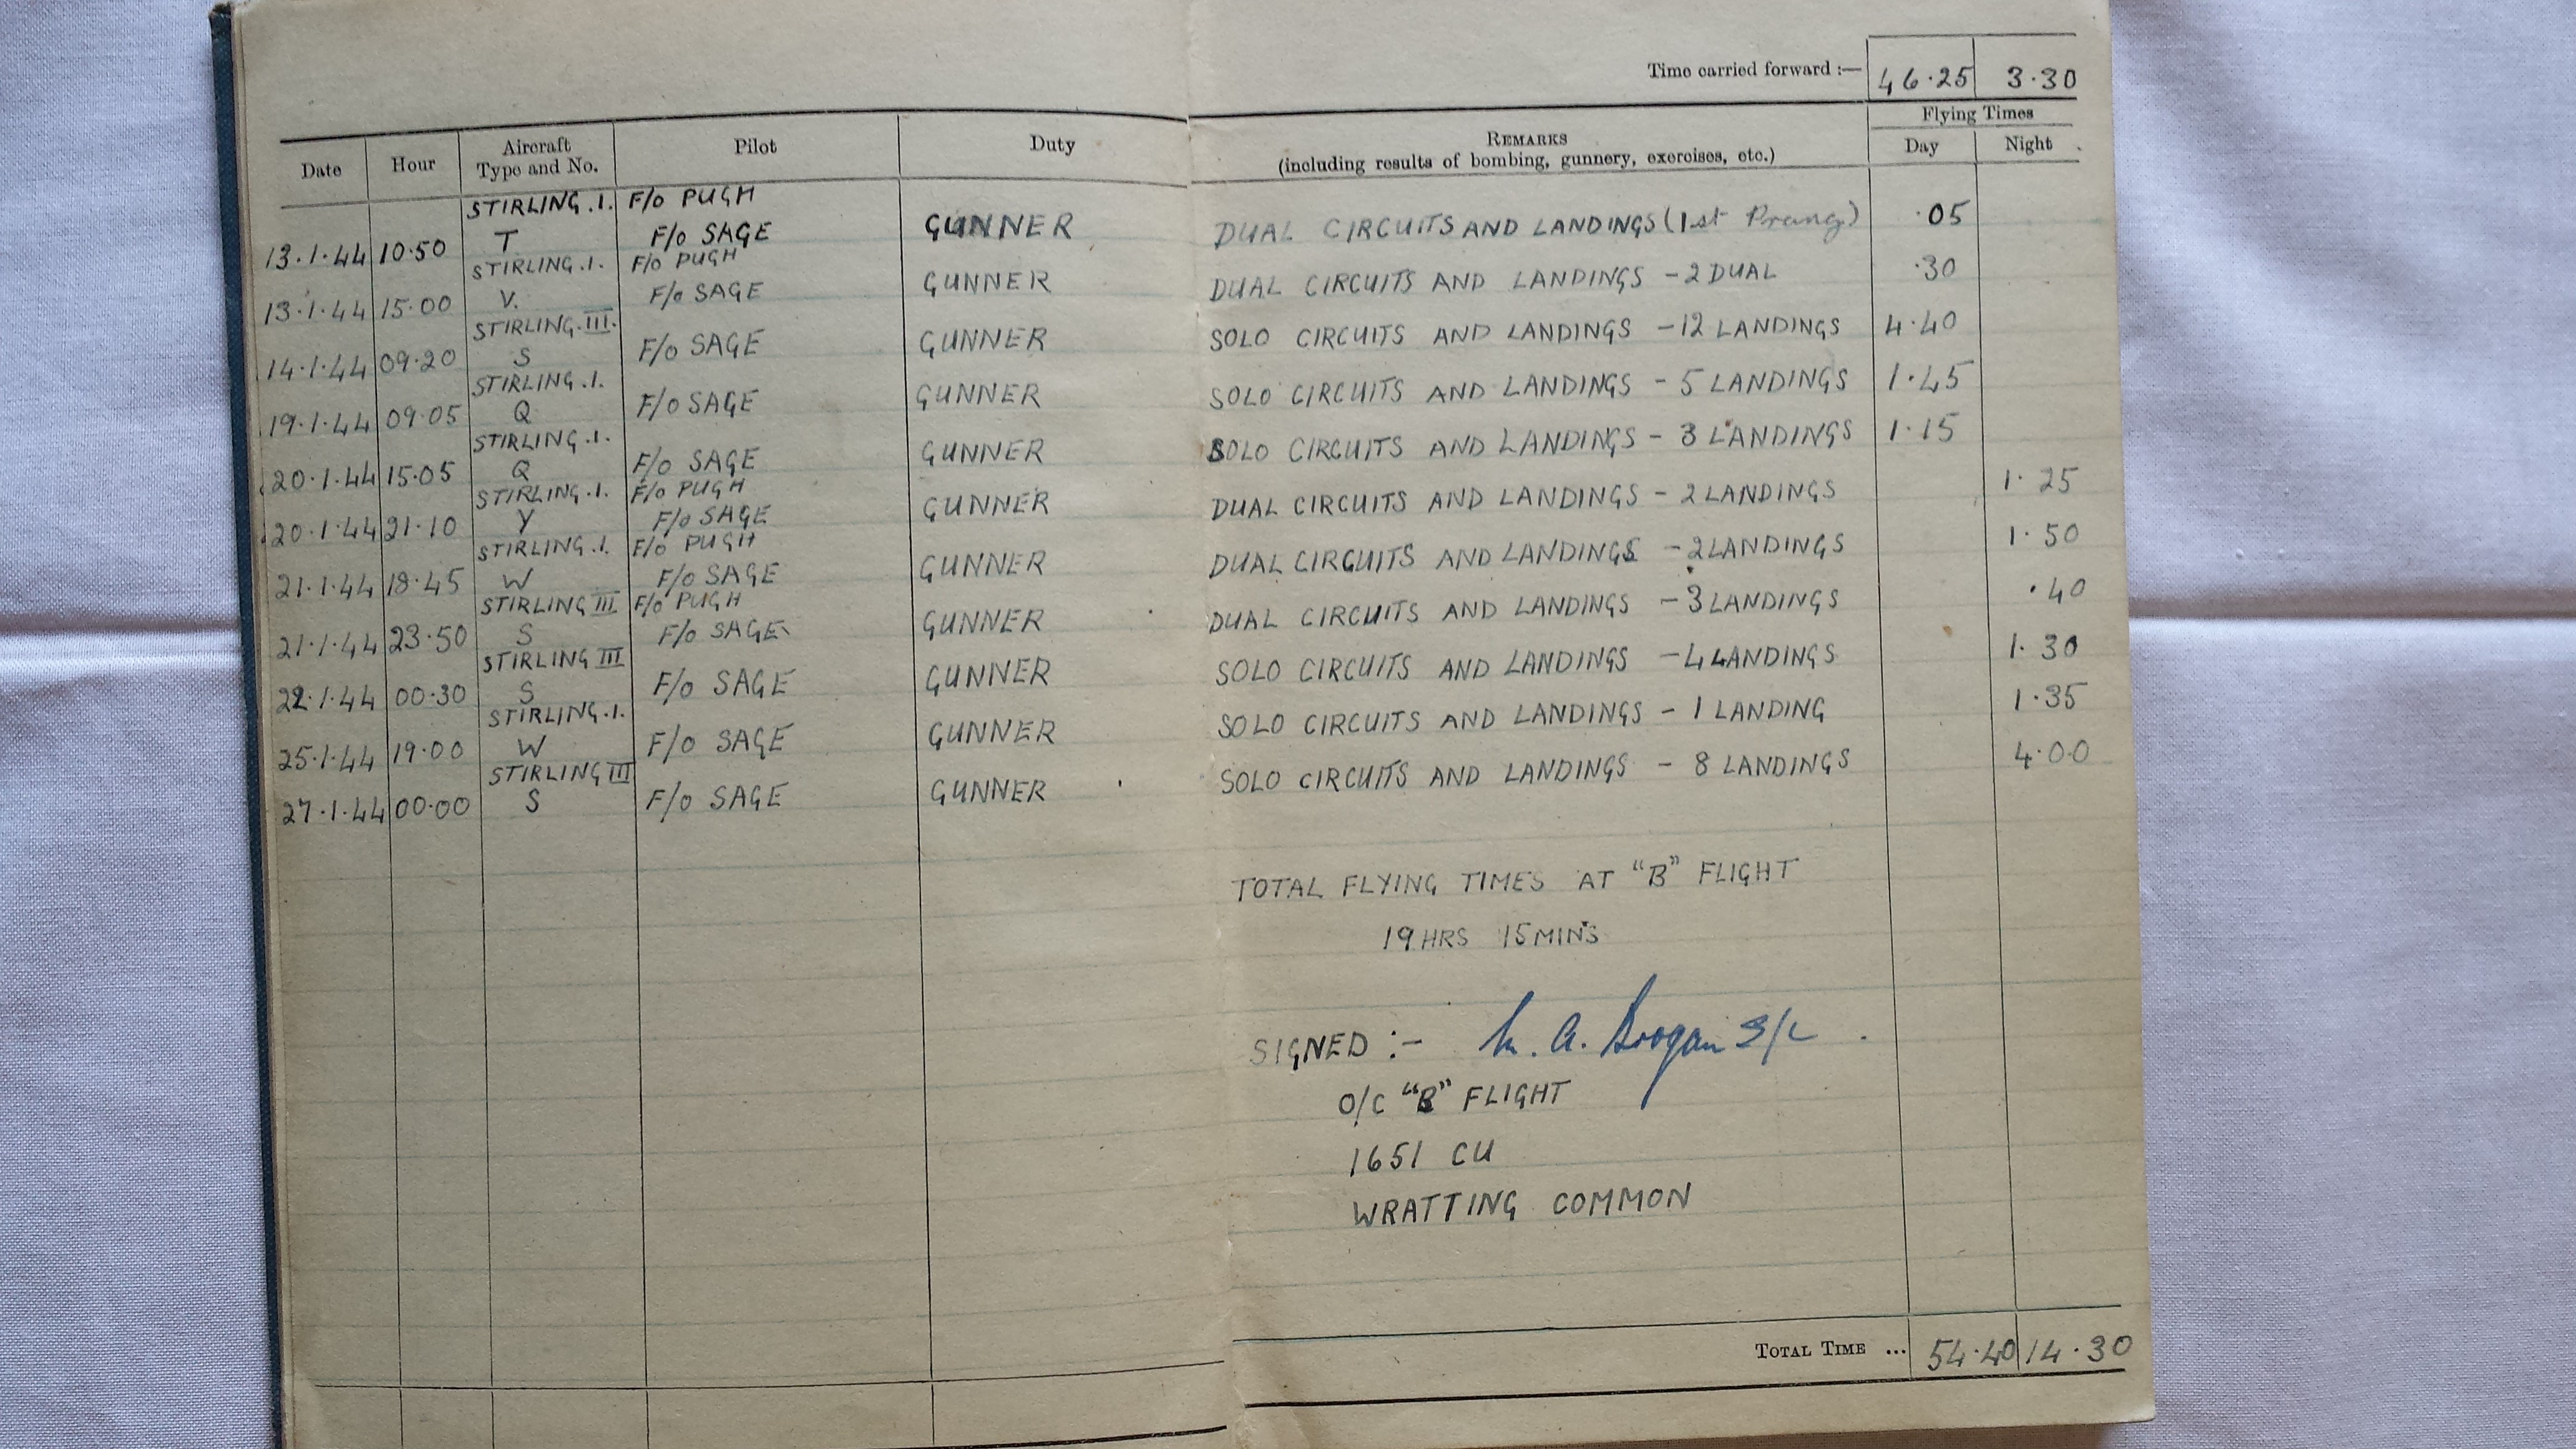 Time carried forward :— 46·25 3·30
Flying Times
Date Hour Aircraft Type and No. Pilot Duty REMARKS (including results of bombing, gunnery, exercises, etc.) Day Night
STIRLING.I. F/O PUGH
13·1·44 10·50 T F/O SAGE GUNNER DUAL CIRCUITS AND LANDINGS (1st Prang) ·05
STIRLING.I. F/O PUGH
13·1·44 15·00 V. F/O SAGE GUNNER DUAL CIRCUITS AND LANDINGS - 2 DUAL ·30
STIRLING.III.
14·1·44 09·20 S F/O SAGE GUNNER SOLO CIRCUITS AND LANDINGS - 12 LANDINGS 4·40
STIRLING.I.
19·1·44 09·05 Q F/O SAGE GUNNER SOLO CIRCUITS AND LANDINGS - 5 LANDINGS 1·45
STIRLING.I.
20·1·44 15·05 Q F/O SAGE GUNNER SOLO CIRCUITS AND LANDINGS - 3 LANDINGS 1·15
STIRLING.I. F/O PUGH
20·1·44 21·10 Y F/O SAGE GUNNER DUAL CIRCUITS AND LANDINGS - 2 LANDINGS 1·25
STIRLING.I. F/O PUGH
21·1·44 18·45 W F/O SAGE GUNNER DUAL CIRCUITS AND LANDINGS - 2 LANDINGS 1·50
STIRLING III F/O PUGH
21·1·44 23·50 S F/O SAGE GUNNER DUAL CIRCUITS AND LANDINGS - 3 LANDINGS ·40
STIRLING III
22·1·44 00·30 S F/O SAGE GUNNER SOLO CIRCUITS AND LANDINGS - 4 LANDINGS 1·30
STIRLING.I.
25·1·44 19·00 W F/O SAGE GUNNER SOLO CIRCUITS AND LANDINGS - 1 LANDING 1·35
STIRLING III
27·1·44 00·00 S F/O SAGE GUNNER SOLO CIRCUITS AND LANDINGS - 8 LANDINGS 4·00
TOTAL FLYING TIMES AT "B" FLIGHT
19 HRS 15 MINS
SIGNED :- A. S/L
O/C "B" FLIGHT
1651 CU
WRATTING COMMON
TOTAL TIME ... 54·40 14·30